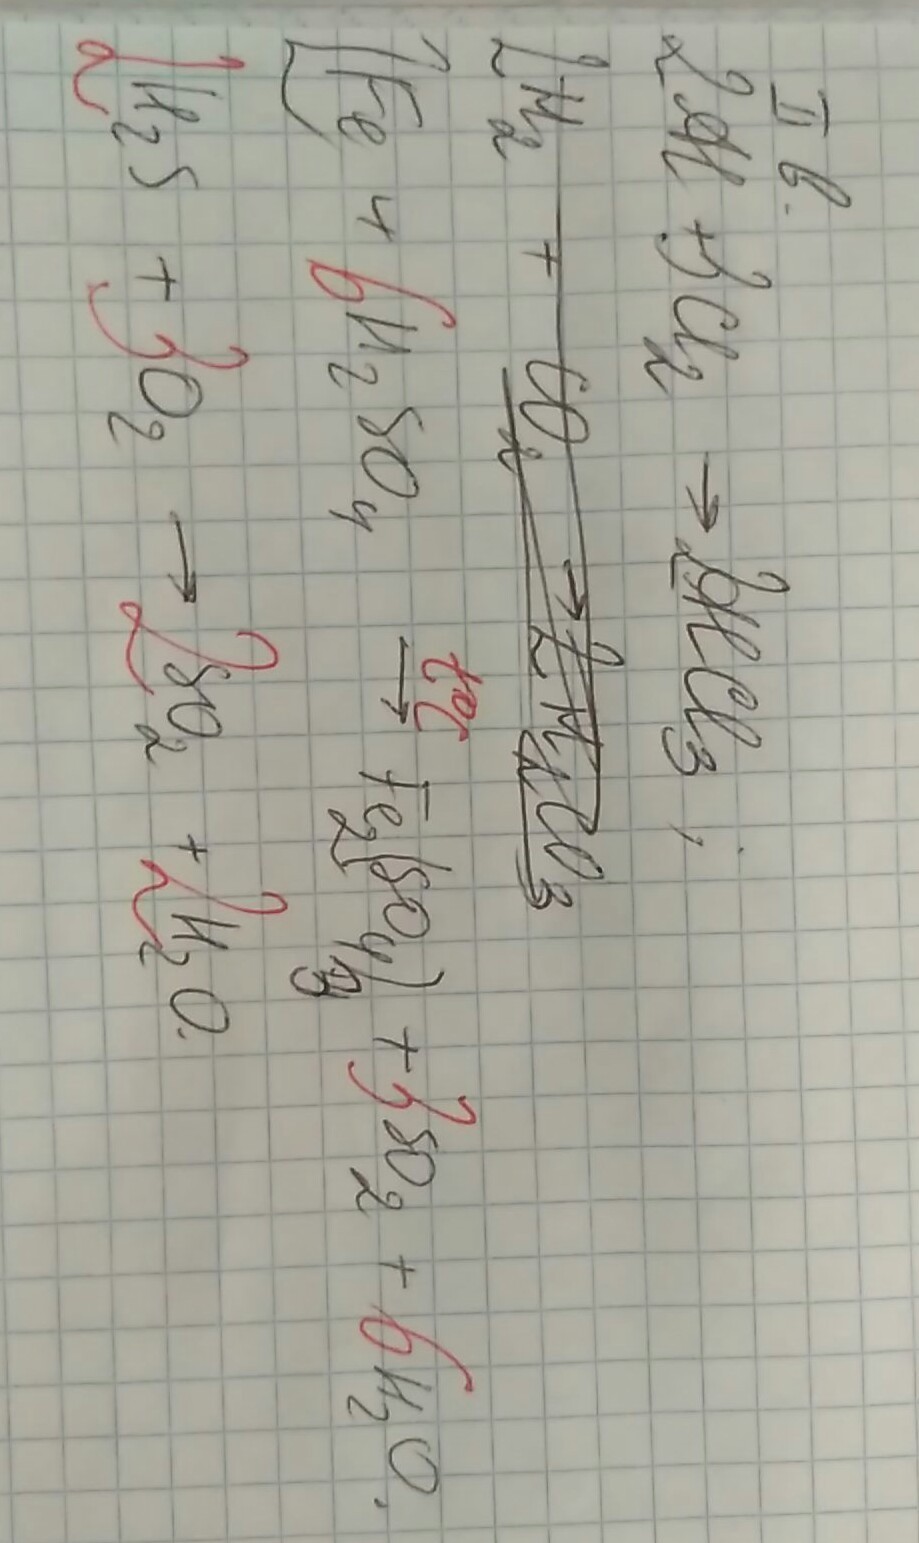 II в.
2Al + 3Cl₂ → 2AlCl₃ ;
2Fe + 6H₂SO₄ t°C → Fe₂(SO₄)₃ + 3SO₂ + 6H₂O.
2H₂S + 3O₂ → 2SO₂ + 2H₂O.